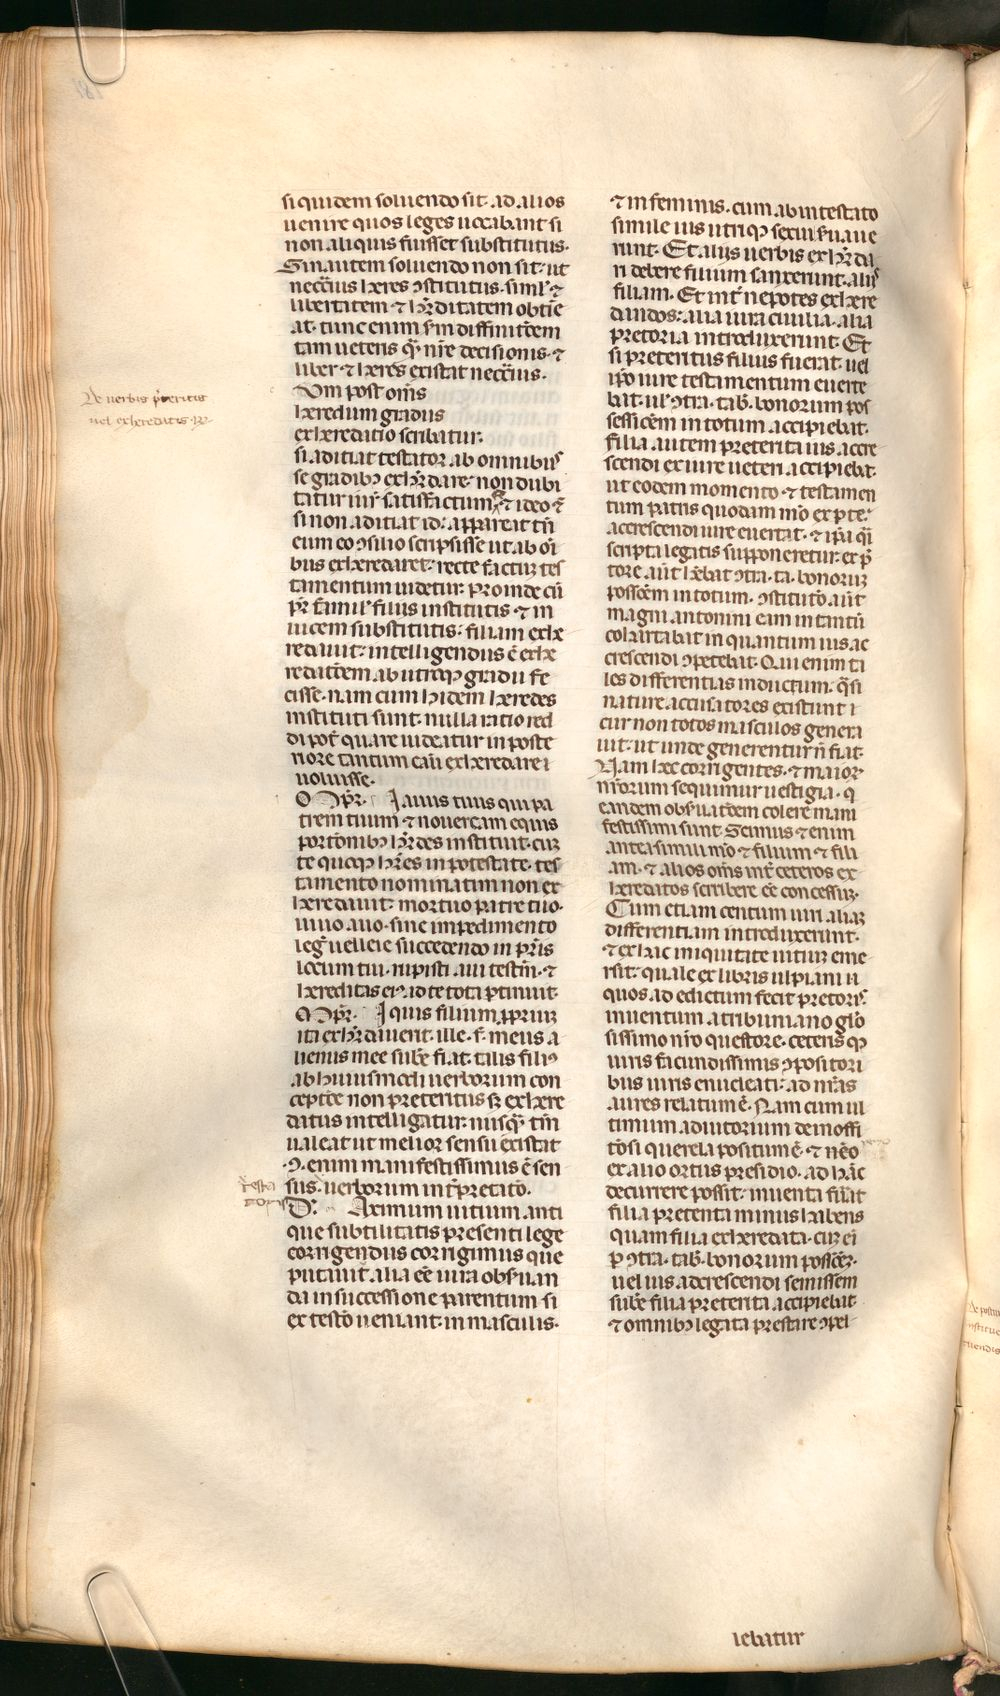 si quidem soluendo sit. ad alios
uenire quos leges uocabant si
non aliquis fuisset substitutus.
Sin autem soluendo non sit: ut
neccius heres ɔstitutus. simł ⁊
libertatem ⁊ hr̄ditatem obtīe
at. tunc enim scd̄m diffinitōem
tam ueteris q̄ nr̄e decisionis. ⁊
liber ⁊ heres existat neccīus.
Um post oms̄
heredum gradus
exheredatio scribatur.
si aditiat testator ab omnibus
se gradibꝫ exhr̄dare. non dubi
tatur iur̄ satisfactum ⁊ ideo ⁊
si non aditiat id: appareat tn̄
eum eo ɔsilio scripsisse ut ab oī
bus exheredaret: recte factuꝫ tes
tamentum uidetur. Proinde cū
pr̄ famił filius institutis ⁊ in
uicem substitutis: filiam exhe
redauit: intelligendus ē exhe
redatōem ab utroqꝫ gradu fe
cisse. nam cum hidem heredes
instituti sunt. nulla ratio red
di pot̄ quare uideatur in poste
riore tantum eam exheredare
uoluisse.
pr̄. I auus tuus qui pa
trem tuum ⁊ nouercam equis
portōnibꝫ hr̄des instituit. cuꝫ
te quoqꝫ hr̄es in potestate. tes
tamento nominatim non ex
heredauit: mortuo patre tuo.
uiuo auo. sine impedimento
leḡ uelleie succedendo in pr̄is
locum tui. rupisti aui testm̄. ⁊
hereditas eiꝰ. id te tota ꝑtinuit.
pr̄. I quis filium ꝓpriuꝫ
ita exhr̄dauerit. ille. f. meus a
lienus mee sub̄e fiat. talis filiꝰ
ab huiusmodi uerborum con
ceptōe non preteritus sꝫ exhere
datus intelligatur. nusq̄ tn̄
ualeat ut melior sensu existat
ɔ. enim manifestissimus ē sen
sus. uerborum intp̄retato.
Aximum uitium anti
que subtilitatis presenti lege
corrigendus corrigimus que
putauit. alia eē iura obsuan
da in successione parentum si
ex testō ueniant. in masculis.
⁊ in feminis. cum ab intestato
simile ius utriqꝫ sexui seruaue
runt. Et alijs uerbis exhr̄da
ri debere filium sanxerunt. alijs
filiam. Et int̄ nepotes exhere
dandos: alia iura ciuilia. alia
pretoria introduxerunt. Et
si preteritus filius fuerat. uel
ipo iure testamentum euerte
bat. ul̄ ɔtra. tab. bonorum pos
sessiōem in totum accipiebat.
filia autem preterita ius accre
scendi ex iure ueteri accipiebat.
ut eodem momento ⁊ testamen
tum patris quodam mō ex ꝑte.
accrescendi iure euertat. ⁊ ipa q̄i
scripta legatis supponeretur. ex p̄
tore aut hebat ɔtra. ta. bonoruꝫ
possōem in totum. ɔstitutō aūt
magni antonini eam in tantū
cohartabat in quantum ius ac
crescendi ɔpetebat. Qui enim ta
les differentias inducunt. q̄si
nature accusatores existunt
cur non totos masculos genera
uit. ut unde generentur n̄ fiat.
Nam hec corrigentes. ⁊ maior
nr̄orum sequimur uestigia. q
eandem obsuatōem colere mani
festissimi sunt. Scimus ⁊ enim
antea simili mō ⁊ filium ⁊ fili
am. ⁊ alios oms̄ int̄ ceteros ex
heredatos scribere eē concessuꝫ.
Cum etiam centum uiri aliaꝫ
differentiam introduxerunt.
⁊ ex hac iniquitate uitiuꝫ eme
rsit. quale ex libris ulpiani
quos ad edictum fecit pretoris
inuentum a tribuniano glō
sissimo nr̄o questore. ceteris qꝫ
uiris facundissimis ɔpositori
bus iuris enucleati: ad nr̄as
aures relatum ē. Nam cum ul
timum adiutorium de inoffi
tōsi querela positum ē. ⁊ nēo
ex alio ortus presidio. ad hāc
decurrere possit. inuenta fūat
filia preterita minus habens
quam filia exheredata. cuꝫ ei
ꝑ ɔtra. tab. bonorum possōeꝫ.
uel ius adcrescendi semissem
sub̄e filia preterita accipiebat
⁊ omnibꝫ legata prestare ɔpel-
lebatur
De uerbis p̄teritis
uel exhereditatis
testa
toris